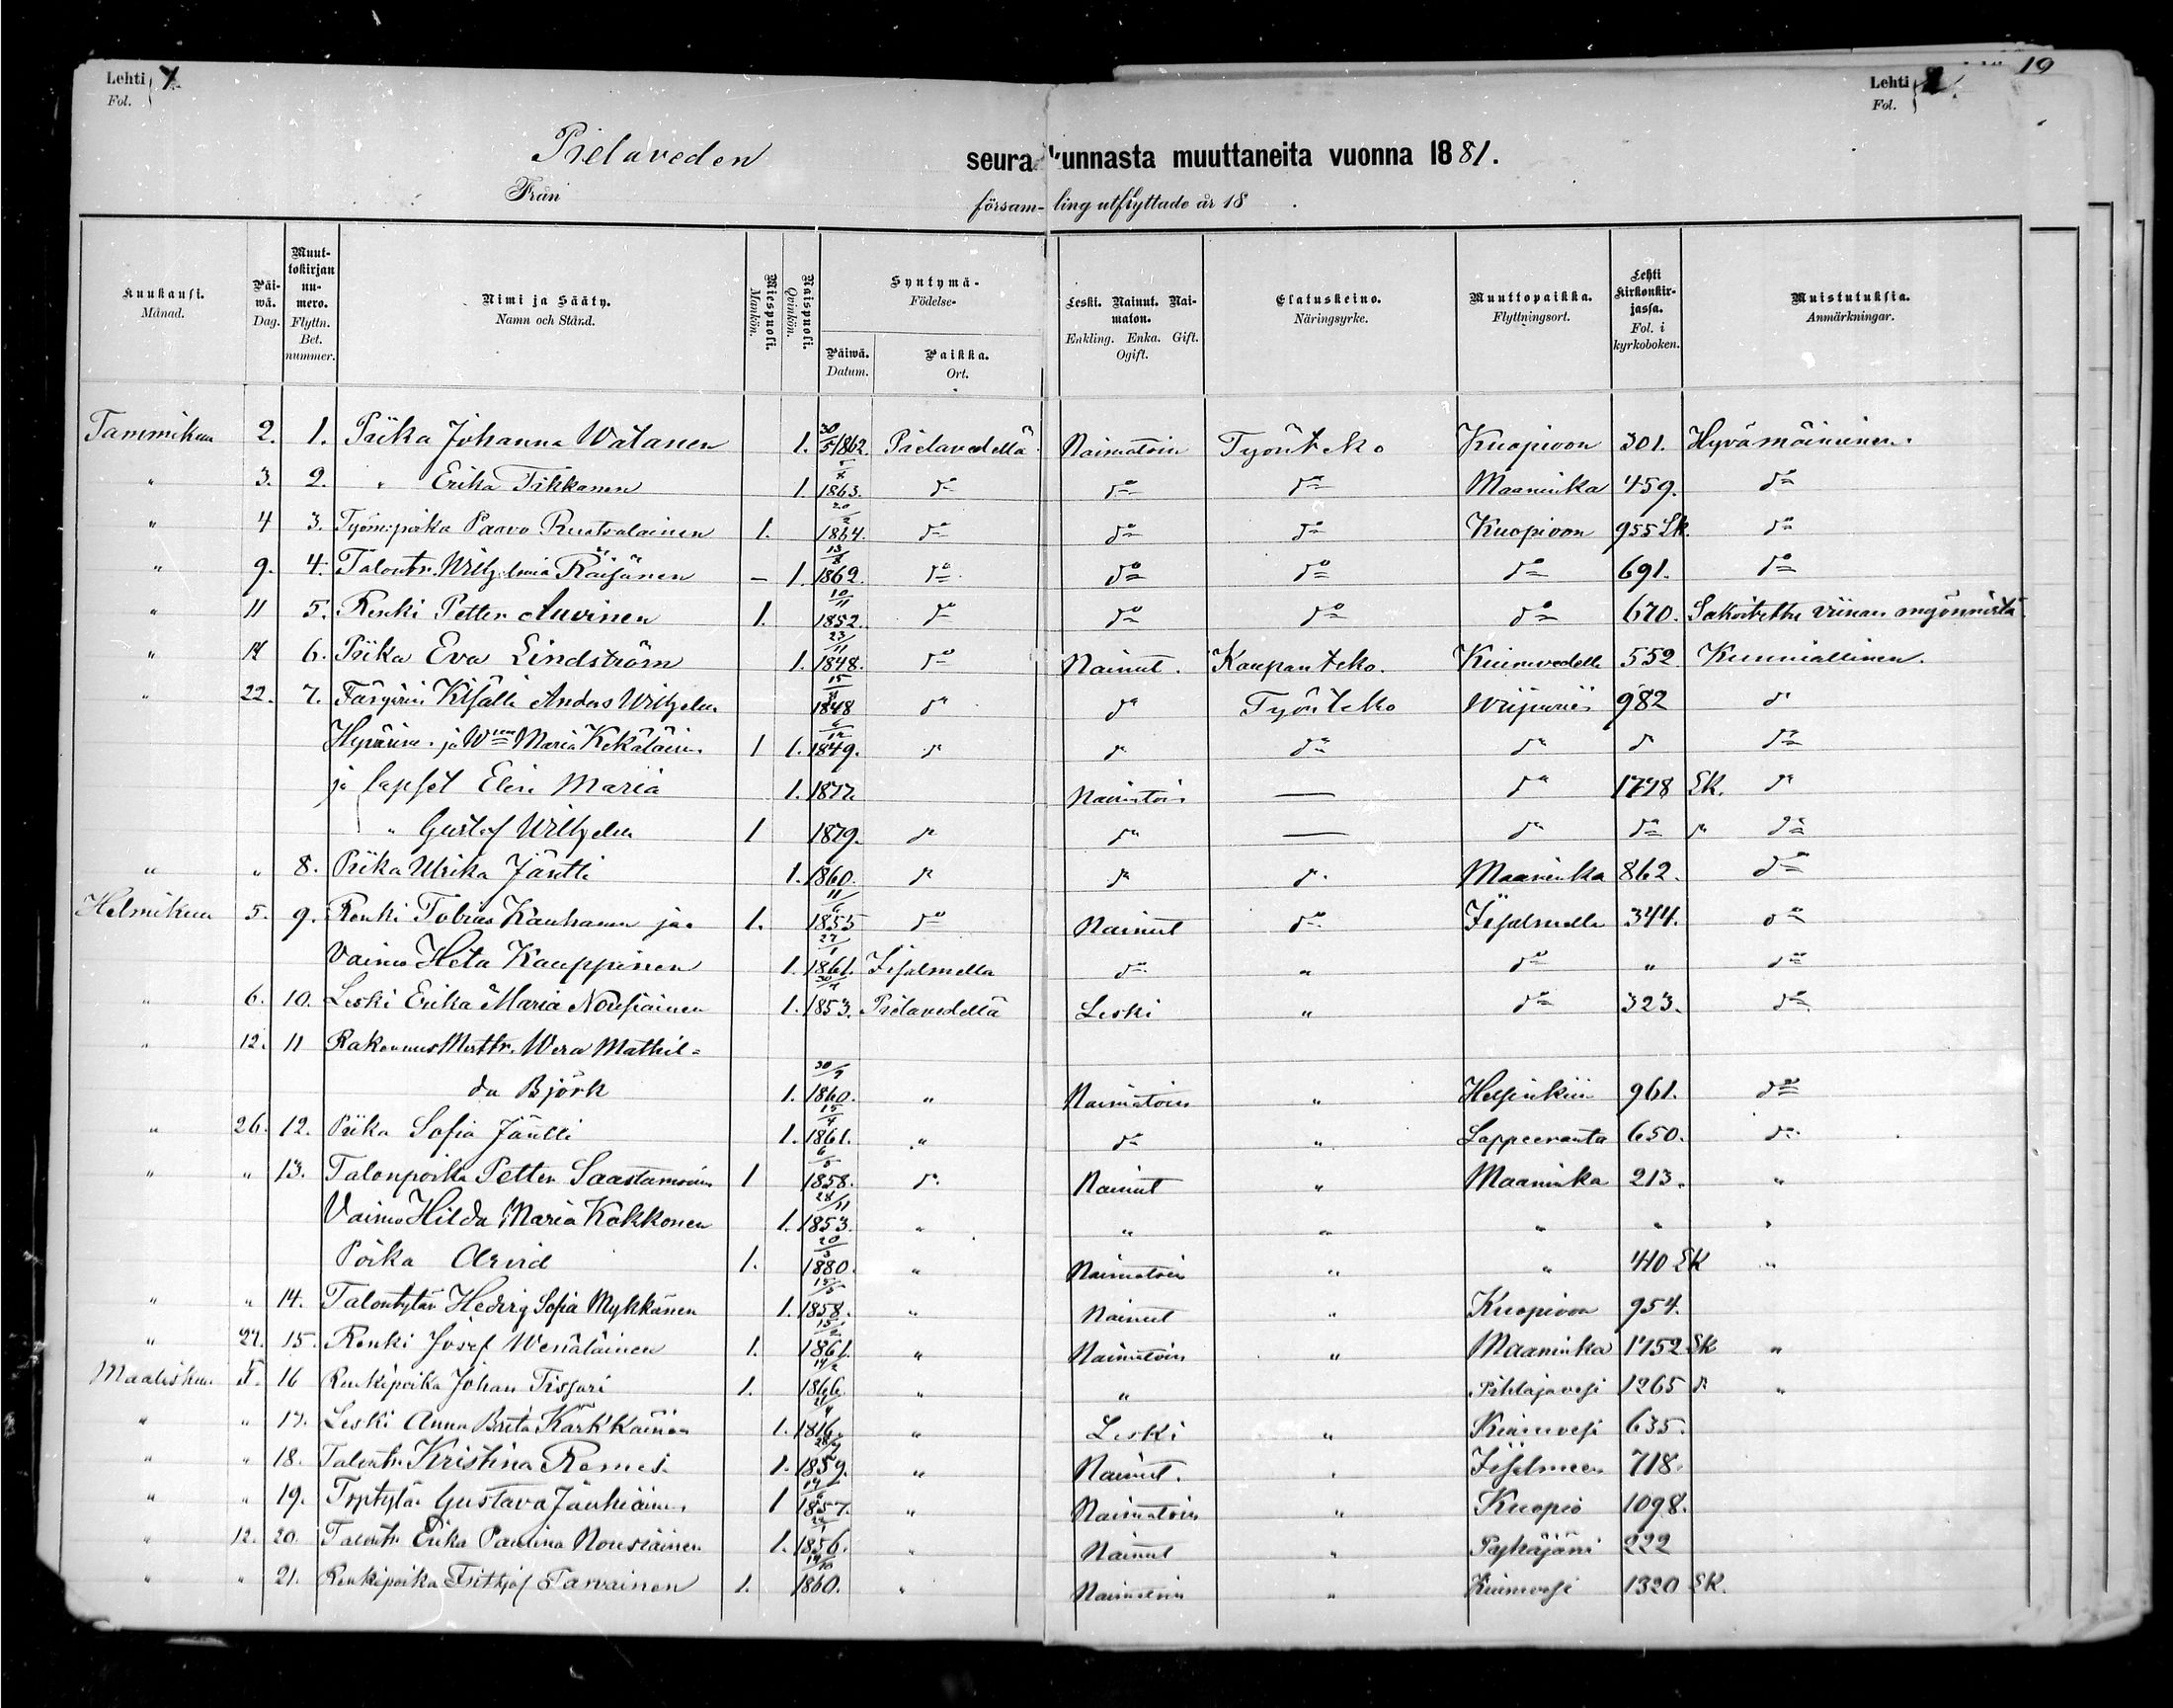 Lehti
Fol.
Lehti
Fol.
19
Pielaveden seurakunnasta muuttaneita vuonna 1881.
Från försam-ling utflyttade år 18 .
Kuukausi. Månad.
Päi-wä. Dag.
Muut-tokirjan nu-mero. Flyttn. Bet. nummer.
Nimi ja Sääty. Namn och Stånd.
Miespuoli. Mankön.
Naispuoli. Qvinkön.
Syntymä- Födelse-
Päiwä. Datum.
Paikka. Ort.
Leski. Nainut. Nai-maton. Enkling. Enka. Gift. Ogift.
Elatuskeino. Näringsyrke.
Muuttopaikka. Flyttningsort.
Lehti Kirkonkir-jassa. Fol. i kyrkoboken.
Muistutuksia. Anmärkningar.
Tammikuu 2. 1. Piika Johanna Watanen 1. 30/5 1862. Pielavedellä Naimatoin Työnteko Kuopioon 301. Hyvämaininen.
" 3. 2. " Erika Tikkanen 1. 1863. do do do Maaninka 459. do
" 4 3. Työm:poika Paavo Ruotsalainen 1. 20/2 1864. do do do Kuopioon 955 Lk. do
" 9. 4. Talontr. Wilhelmia Räisänen – 1. 13/8 1862. do do do do 691. do
" 11 5. Renki Petter Auvinen 1. 10/11 1852. do do do do 670. Sakoitettu viinan myönnistä
" 14 6. Piika Eva Lindström 1. 23/11 1848. do Nainut. Kaupanteko. Kiuruvedelle 552 Kunniallinen.
" 22. 7. Färjäri Kisälli Anders Wilhelm 15/8 1848 do do Työnteko Wiipuriin 982 do
Hyvärin. ja Wmo Maria Kekäläin. 1 1. 6/12 1849. do do do do do do
ja lapset Elin Maria 1. 1877. Naimatoin — do 1778 LK. do
" Gustaf Wilhelm 1 1879. do do — do do do do
" " 8. Piika Ulrika Jäntti 1. 1860. do do do. Maaninka 862. do
Helmikuu 5. 9. Renki Tobias Kauhanen ja 1. 11/6 1855 do Nainut do Iisalmella 344. do
Vaimo Heta Kauppinen 1. 27/1 1861. Iisalmella do " do " do
" 6. 10. Leski Erika Maria Nousiainen 1. 1853. Pielavedellä Leski " do 323. do
" 12. 11 Rakennus Mesttr. Wera Mathil=
da Björk 1. 30/9 1860. " Naimatoin " Helsinkiin 961. do
" 26. 12. Piika Sofia Jäntti 1. 15/4 1861. " do " Lappeeranta 650. do
" " 13. Talonpoika Petter Saastamoin 1 6/5 1858. do. Nainut " Maaninka 213. "
Vaimo Hilda Maria Kokkonen 1. 28/11 1853. " " " " " "
Poika Arvid 1. 20/3 1880. " Naimatoin " " 410 LK "
" " 14. Talontytär Hedvig Sofia Mykkänen 1. 15/5 1858. " Nainut " Kuopioon 954.
" 27. 15. Renki Josef Wenäläinen 1. 15/2 1861. " Naimatoin " Maaninka 1752 Lk "
Maaliskuu 5. 16 Renkipoika Johan Tissari 1. 14/2 1866. " " Pihlajavesi 1265 do "
" " 17. Leski Anna Brita Kärkkäinen 1. 21/4 1816. " Leski " Kiuruvesi 635.
" " 18. Talontr. Kristina Remes. 1. 1859. " Nainut. " Iisalmeen 718.
" " 19. Torptytär Gustava Jauhiainen 1 1857. " Naimatoin " Kuopio 1098.
" 12. 20. Talontr. Erika Paulina Nousiainen 1. 1856. " Nainut " Pyhäjärvi 222
" " 21. Renkipoika Frithjof Tarvainen 1. 1860. " Naimatoin " Kiuruvesi 1320 LK.